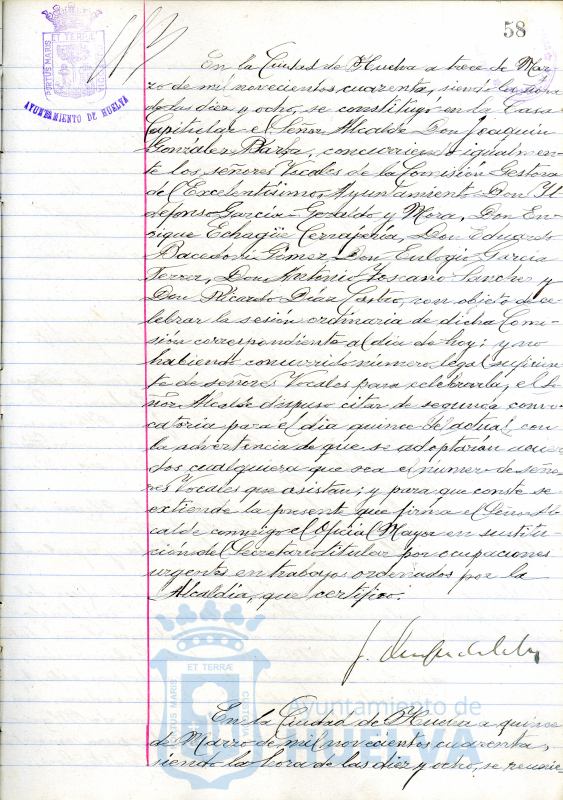 58
PORTUS MARIS
ET TERRÆ
CUSTODIA
AYUNTAMIENTO DE HUELVA
En la Ciudad de Huelva a trece de Mar-
zo de mil novecientos cuarenta, siendo la hora
de las diez y ocho, se constituyó en la Casa
Capitular el Señor Alcalde Don Joaquin
González Barba, concurriendo igualmen-
te los señores Vocales de la Comisión Gestora
del Excelentísimo Ayuntamiento Don Il-
defonso Garcia-Geraldo y Mora, Don En-
rique Echagüe Cerrajería, Don Eduardo
Gómez Don Eulogio Garcia
Ferrer, Don Antonio Toscano Sanchez y
Don Ricardo Diaz Castro, con objeto de ce-
lebrar la sesión ordinaria de dicha Comi-
sión correspondiente al dia de hoy; y no
habiendo concurrido número legal suficien-
te de señores Vocales para celebrarla, el Se-
ñor Alcalde dispuso citar de segunda convo-
catoria para el dia quince del actual con
la advertencia de que se adoptarán acuer-
dos cualquiera que sea el número de seño-
res Vocales que asistan; y para que conste se
extiende la presente que firma el Señor Al-
calde conmigo el Oficial Mayor en sustitu-
ción del Secretario titular por ocupaciones
urgentes en trabajos ordenados por la
Alcaldia, que certifico.
PORTUS MARIS
ET TERRÆ
CUSTODIA
Ayuntamiento de
HUELVA
En la Ciudad de Huelva a quince
de Marzo de mil novecientos cuarenta,
siendo la hora de las diez y ocho, se reunie-